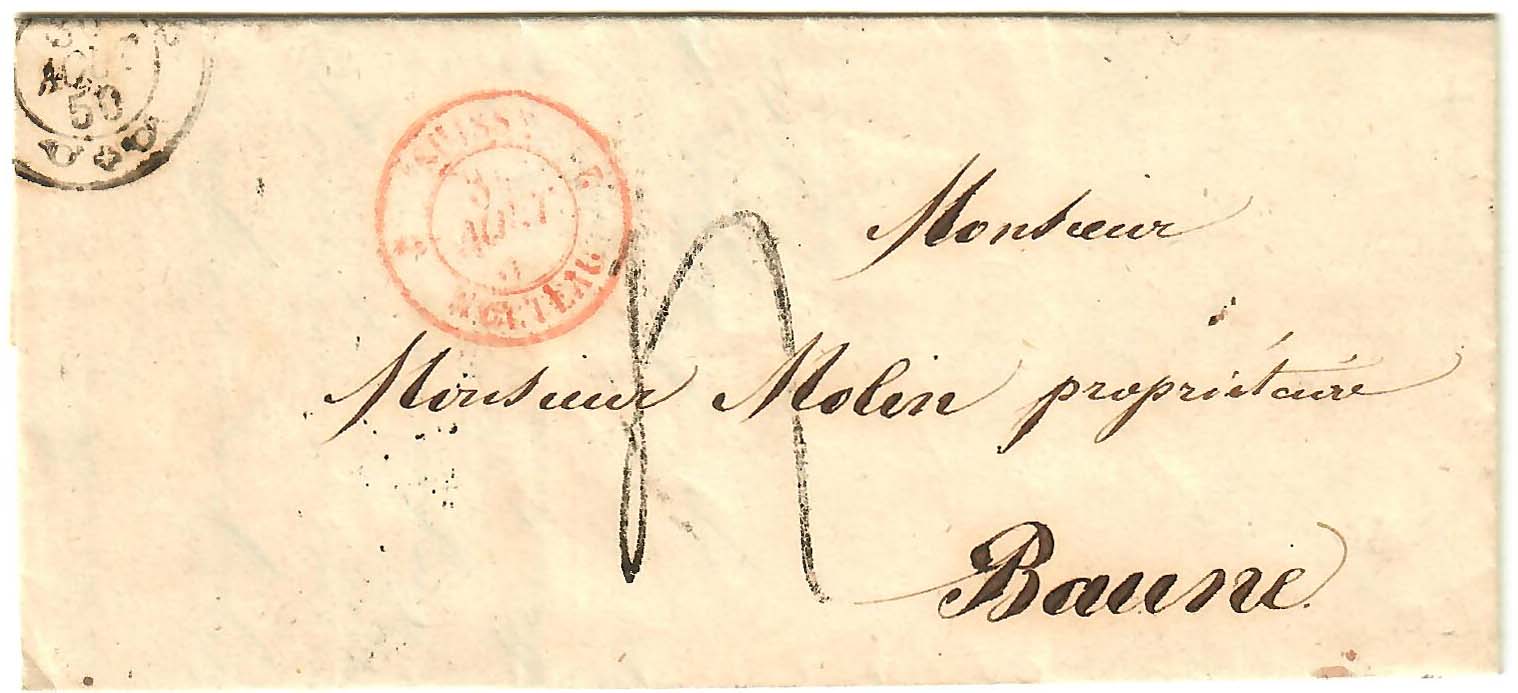 AOUT
50
SUISSE
AOUT
Monsieur
Monsieur Molin propriétaire
Baune